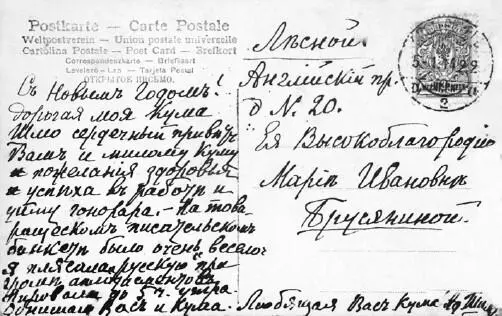 Postkarte – Carte Postale
Weltpostverein – Union postale universelle
Cartolina Postale – Post Card – Brefkort
Correspondenzkarte – Briefkaart
Levelező-Lap – Tarjeta Postal
ОТКРЫТОЕ ПИСЬМО.
Съ Новымъ Годомъ!
дорогая моя Кума
Шлю сердечный привѣтъ
Вамъ и милому Куму
и пожелания здоровья
и успѣха въ работѣ и
уйму гонорара. – На това
рищескомъ писательскомъ
банкетѣ было очень весело
я плясала русскую при
громѣ аплодисментовъ
Пировали до 5 ч. утра
Вспоминала Васъ и Кума.
Лѣсной.
Английскій пр.
д N. 20.
Ея Высокоблагородію
Маріи Ивановнѣ
Брусяниной.
Любящая Васъ Кума
2